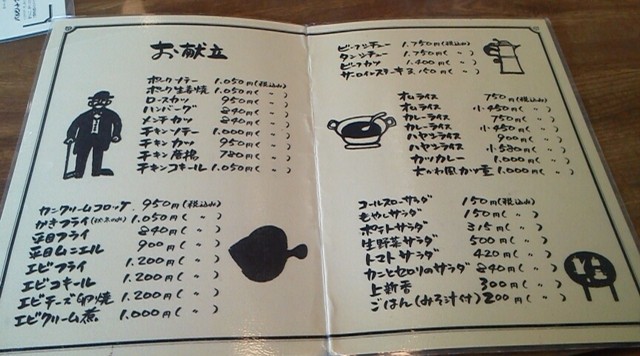 お献立
ポークソテー 1.050円(税込み)
ポーク生姜焼 1.050円( 〃 )
ロースカツ 950円( 〃 )
ハンバーグ 840円( 〃 )
メンチカツ 840円( 〃 )
チキンソテー 1.000円( 〃 )
チキンカツ 950円( 〃 )
チキン唐揚 780円( 〃 )
チキンコキール 1.050円( 〃 )
カニクリームコロッケ 950円(税込み)
かきフライ 1.050円( 〃 )
平目フライ 840円( 〃 )
平目ムニエル 900円( 〃 )
エビフライ 1.200円( 〃 )
エビコキール 1.200円( 〃 )
エビチーズ卵焼 1.200円( 〃 )
エビクリーム煮 1.000円( 〃 )
ビーフシチュー 1.750円(税込み)
タンシチュー 1.750円( 〃 )
ビーフカツ 1.400円( 〃 )
サーロインステーキ 3.150円( 〃 )
オムライス 750円(税込み)
オムライス 小450円( 〃 )
カレーライス 750円( 〃 )
カレーライス 小450円( 〃 )
ハヤシライス 900円( 〃 )
ハヤシライス 小580円( 〃 )
カツカレー 1.000円( 〃 )
カツ重 1.000円( 〃 )
コールスローサラダ 150円(税込み)
もやしサラダ 150円( 〃 )
ポテトサラダ 315円( 〃 )
生野菜サラダ 500円( 〃 )
トマトサラダ 420円( 〃 )
カニとセロリのサラダ 840円( 〃 )
上新香 300円( 〃 )
ごはん(みそ汁付) 200円( 〃 )